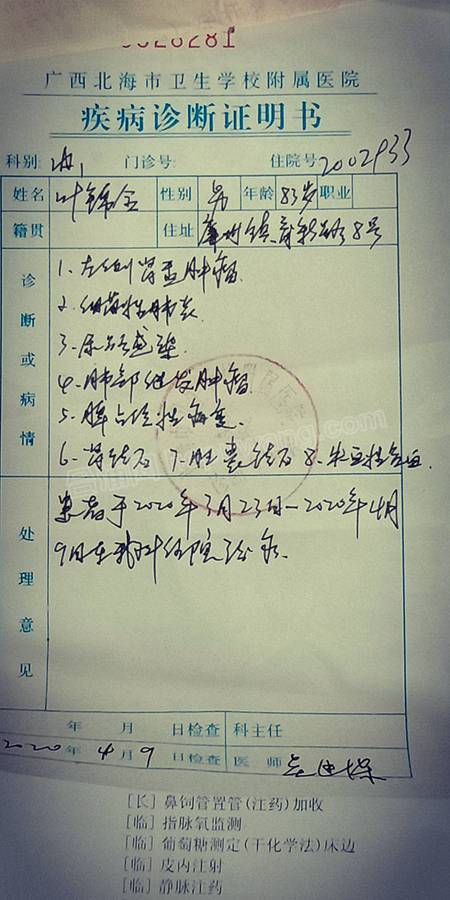 0028281
广西北海市卫生学校附属医院
疾病诊断证明书
科别: 内1 门诊号: 住院号 2002933
姓名 叶锦全 性别 男 年龄 83岁 职业
籍贯 住址 廉州镇 路8号
诊断或病情
1. 左侧肾盂肿瘤
2. 细菌性肺炎
3. 尿路感染
4. 肺部继发肿瘤
5. 脾占位性病变
6. 肾结石 7. 胆囊结石 8. 失血性贫血.
处理意见
患者于2020年3月23日-2020年4月
9日在我科住院治疗.
年 月 日检查 科主任
2020年4月9日检查 医师
[长] 鼻饲管置管(注药)加收
[临] 指脉氧监测
[临] 葡萄糖测定(干化学法)床边
[临] 皮内注射
[临] 静脉注药